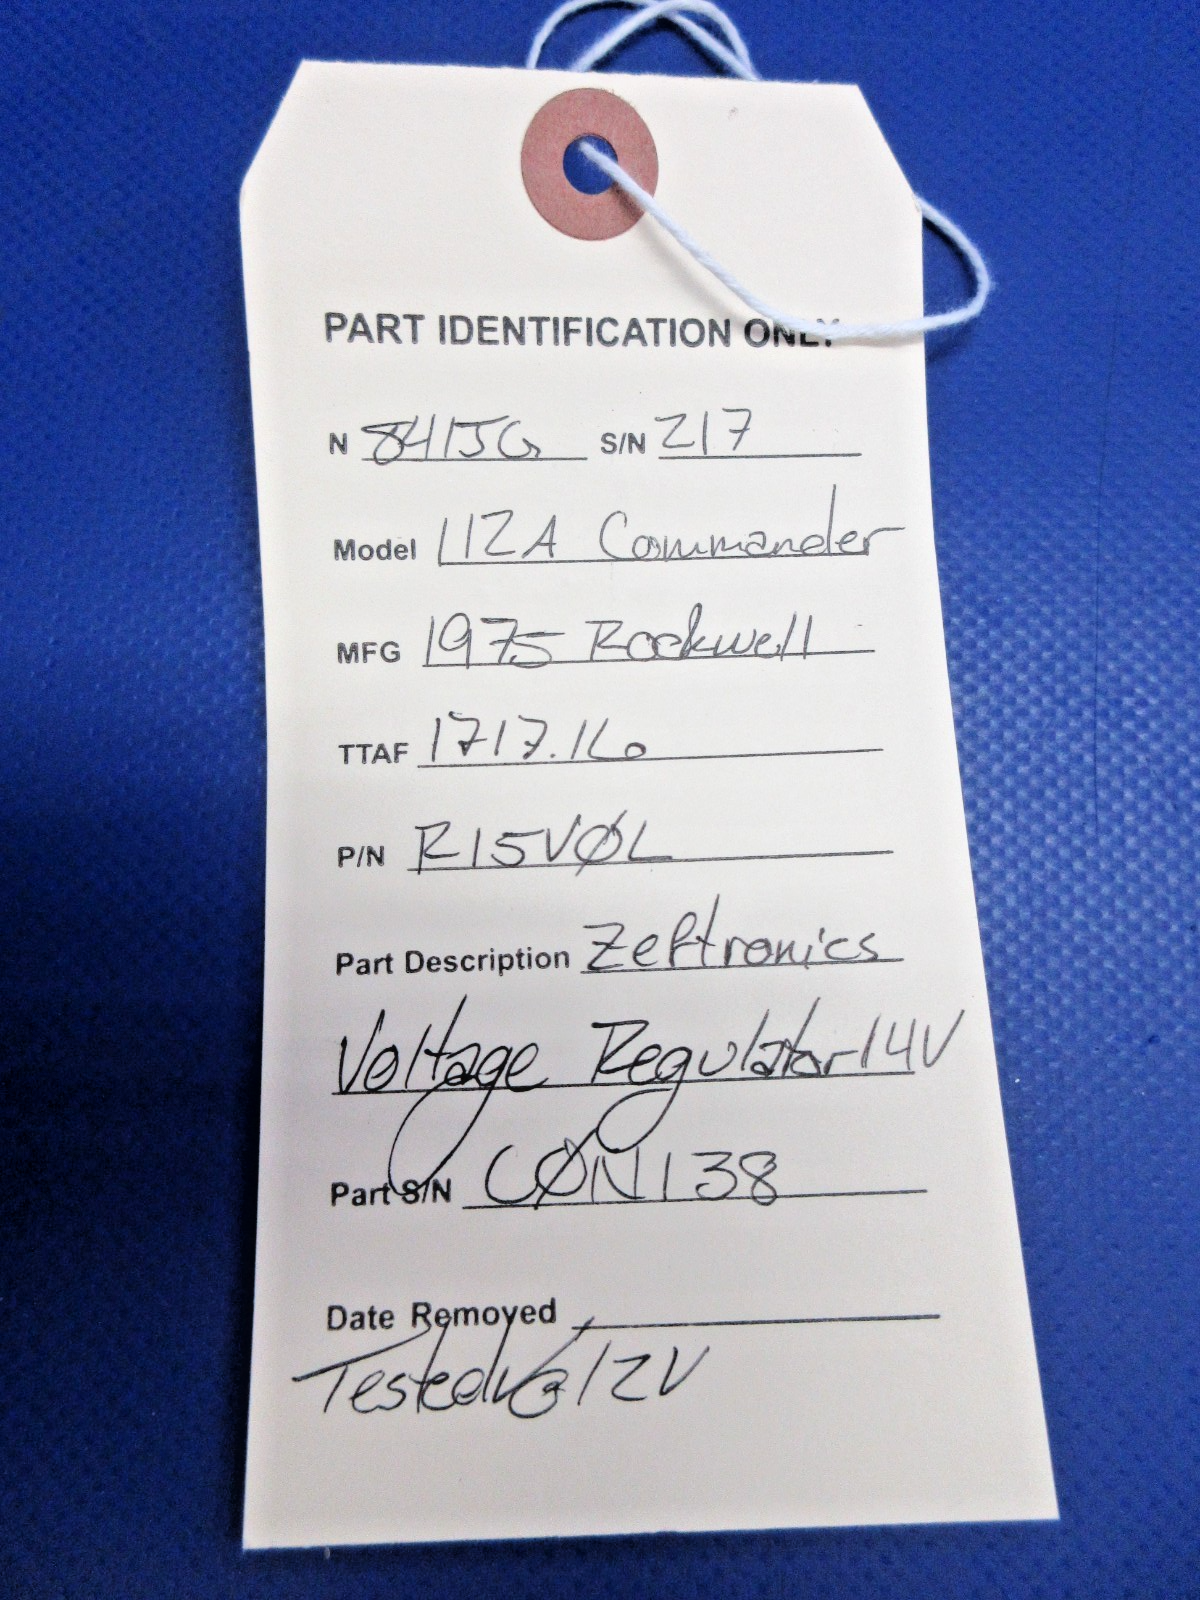 PART IDENTIFICATION ONLY
N 8415G S/N 217
Model 112A Commander
MFG 1975 Rockwell
TTAF 1717.16
P/N R15VØL
Part Description Zeftronics
Voltage Regulator 14V
Part S/N CØN138
Date Removed
Tested 12V